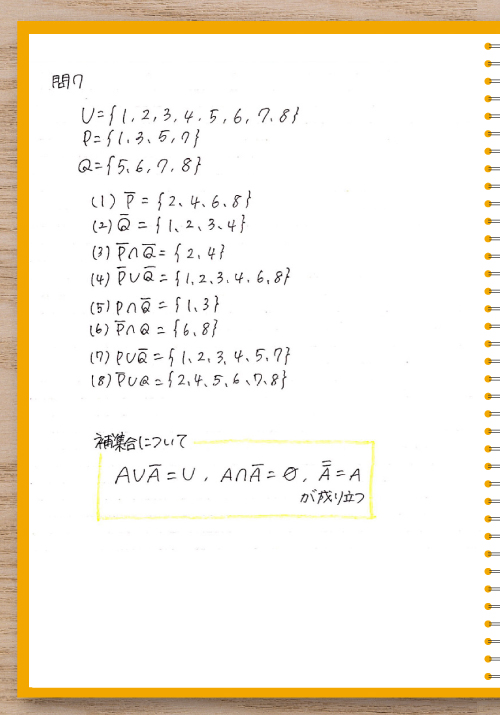 問7
U={1, 2, 3, 4, 5, 6, 7, 8}
P={1, 3, 5, 7}
Q={5, 6, 7, 8}
(1) P̅ = {2, 4, 6, 8}
(2) Q̅ = {1, 2, 3, 4}
(3) P̅∩Q̅ = {2, 4}
(4) P̅∪Q̅ = {1, 2, 3, 4, 6, 8}
(5) P∩Q̅ = {1, 3}
(6) P̅∩Q = {6, 8}
(7) P∪Q̅ = {1, 2, 3, 4, 5, 7}
(8) P̅∪Q = {2, 4, 5, 6, 7, 8}
補集合について
A∪A̅ = U , A∩A̅ = ∅ , A̿ = A
が成り立つ